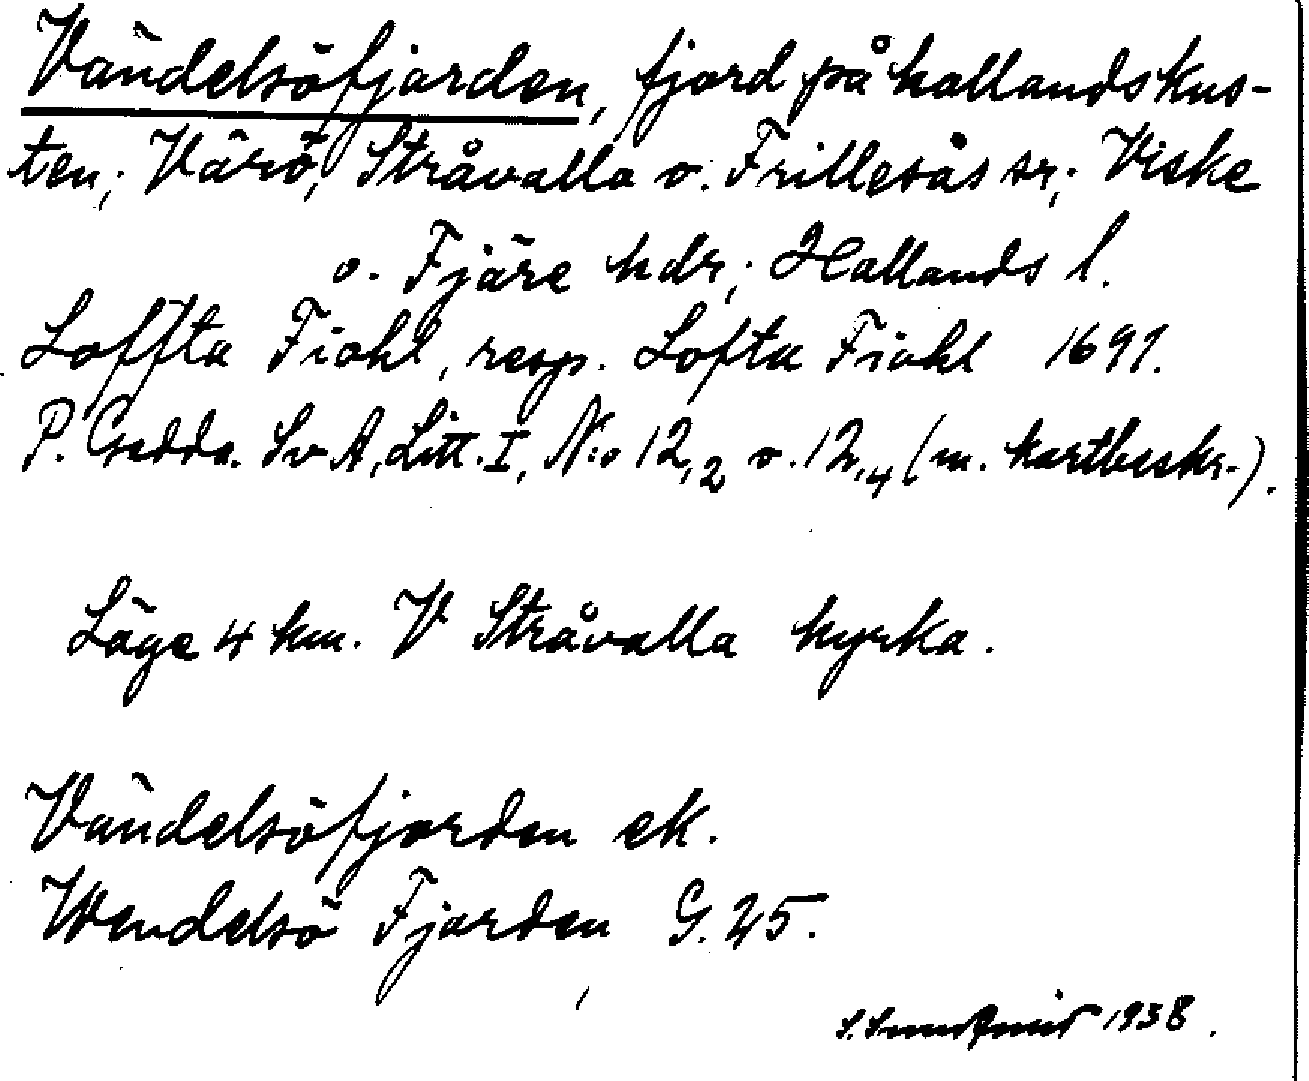 Vändelsöfjorden, fjord på hallandskus-
ten; Värö, Stråvalla o. Frillesås sr; Viske
o. Fjäre hdr; Hallands l.
Loffta Fiohl, resp. Lofta Fiohl 1691.
P. Gedda. Sv A, Litt. I, N:o 12,2 o. 12,4 (m. kartbeskr.).
Läge 4 km. V Stråvalla kyrka.
Vändelsöfjorden ek.
Wendelsö Fjorden, G. 25.
1938.